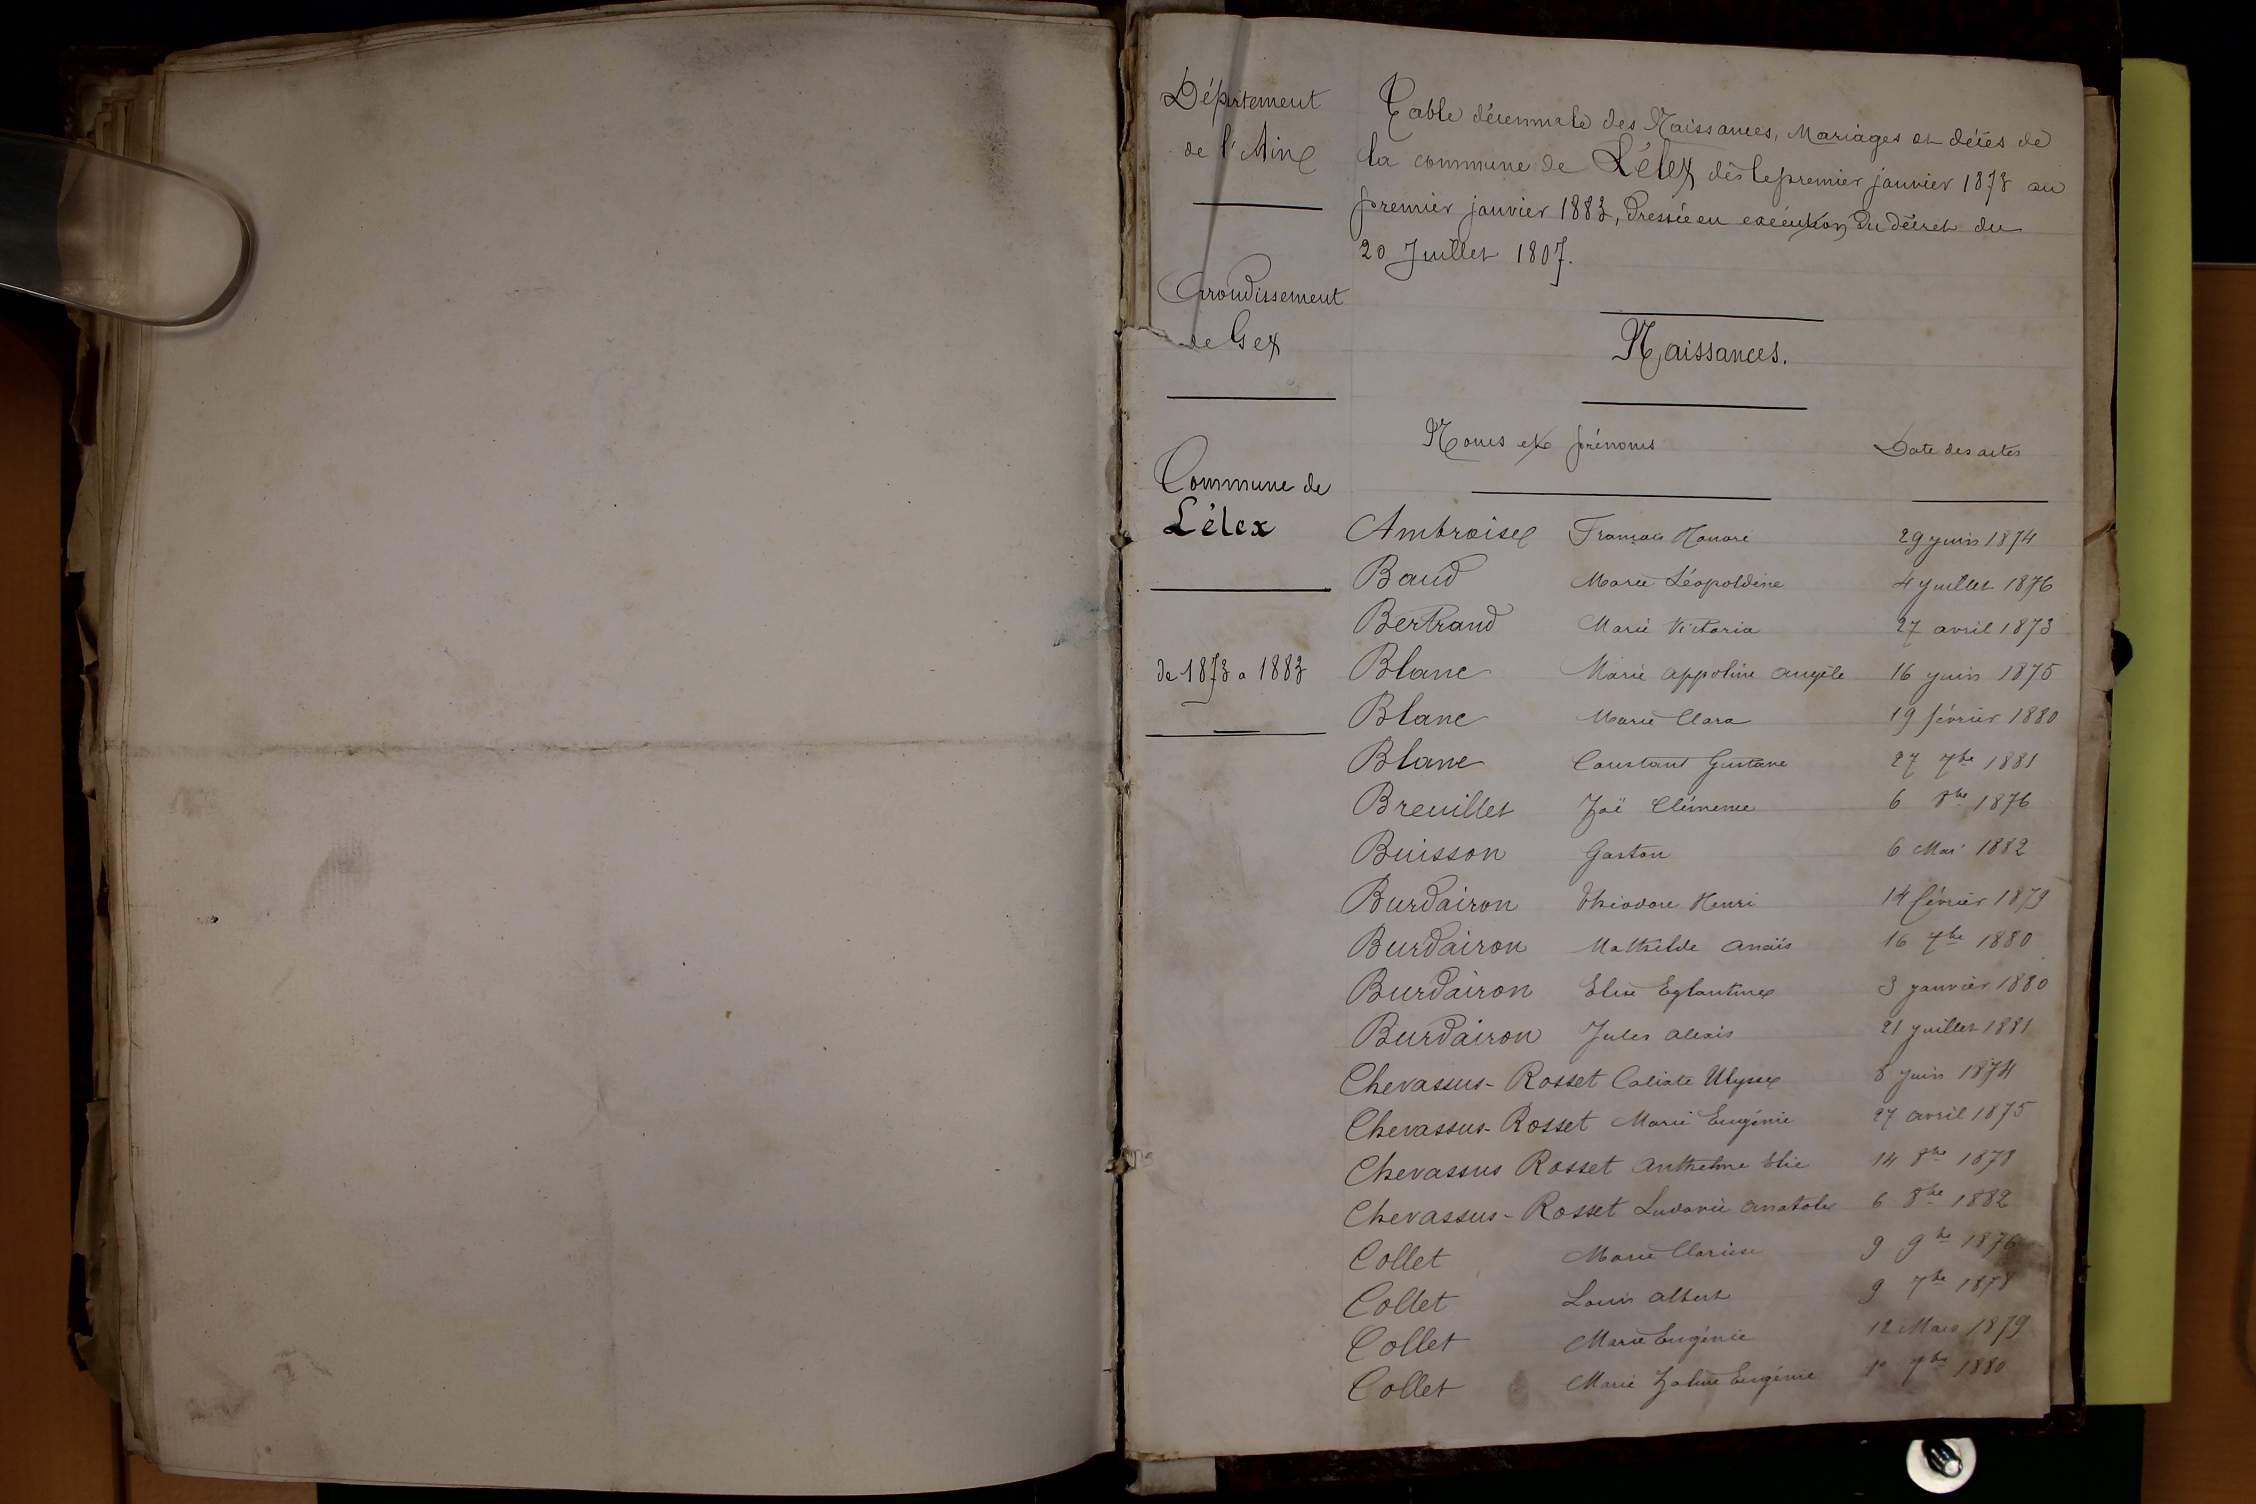 Département
de l'Ain
Arrondissement
de Gex
Commune de
Lélex
de 1873 a 1883
Table décennale des Naissances, Mariages et décès de
la commune de Lélex dès le premier janvier 1873 au
premier janvier 1883, Dressée en exécution du décret du
20 Juillet 1807.
Naissances.
Noms et prénoms Date des actes
Ambroise François Honoré 29 juin 1874
Baud Marie Léopoldine 4 juillet 1876
Bertrand Marie Victoria 27 avril 1873
Blanc Marie Appoline Angèle 16 juin 1875
Blanc Marie Clara 19 février 1880
Blanc Constant Gustave 27 7bre 1881
Breuillet Zoë Clémence 6 8bre 1876
Buisson Gaston 6 Mai 1882
Burdairon Théodore Henri 14 février 1879
Burdairon Mathilde Anaïs 16 7bre 1880
Burdairon Elise Eglantine 3 janvier 1880
Burdairon Jules Alexis 21 juillet 1881
Chevassus-Rosset Calixte Ulysse 8 juin 1874
Chevassus-Rosset Marie Eugénie 27 avril 1875
Chevassus Rosset Anthelme Elie 14 8bre 1878
Chevassus-Rosset Ludovic Anatole 6 8bre 1882
Collet Marie Clarisse 9 9bre 1876
Collet Louis Albert 9 7bre 1878
Collet Marie Eugénie 12 Mars 1879
Collet Marie Eugénie 7bre 1880